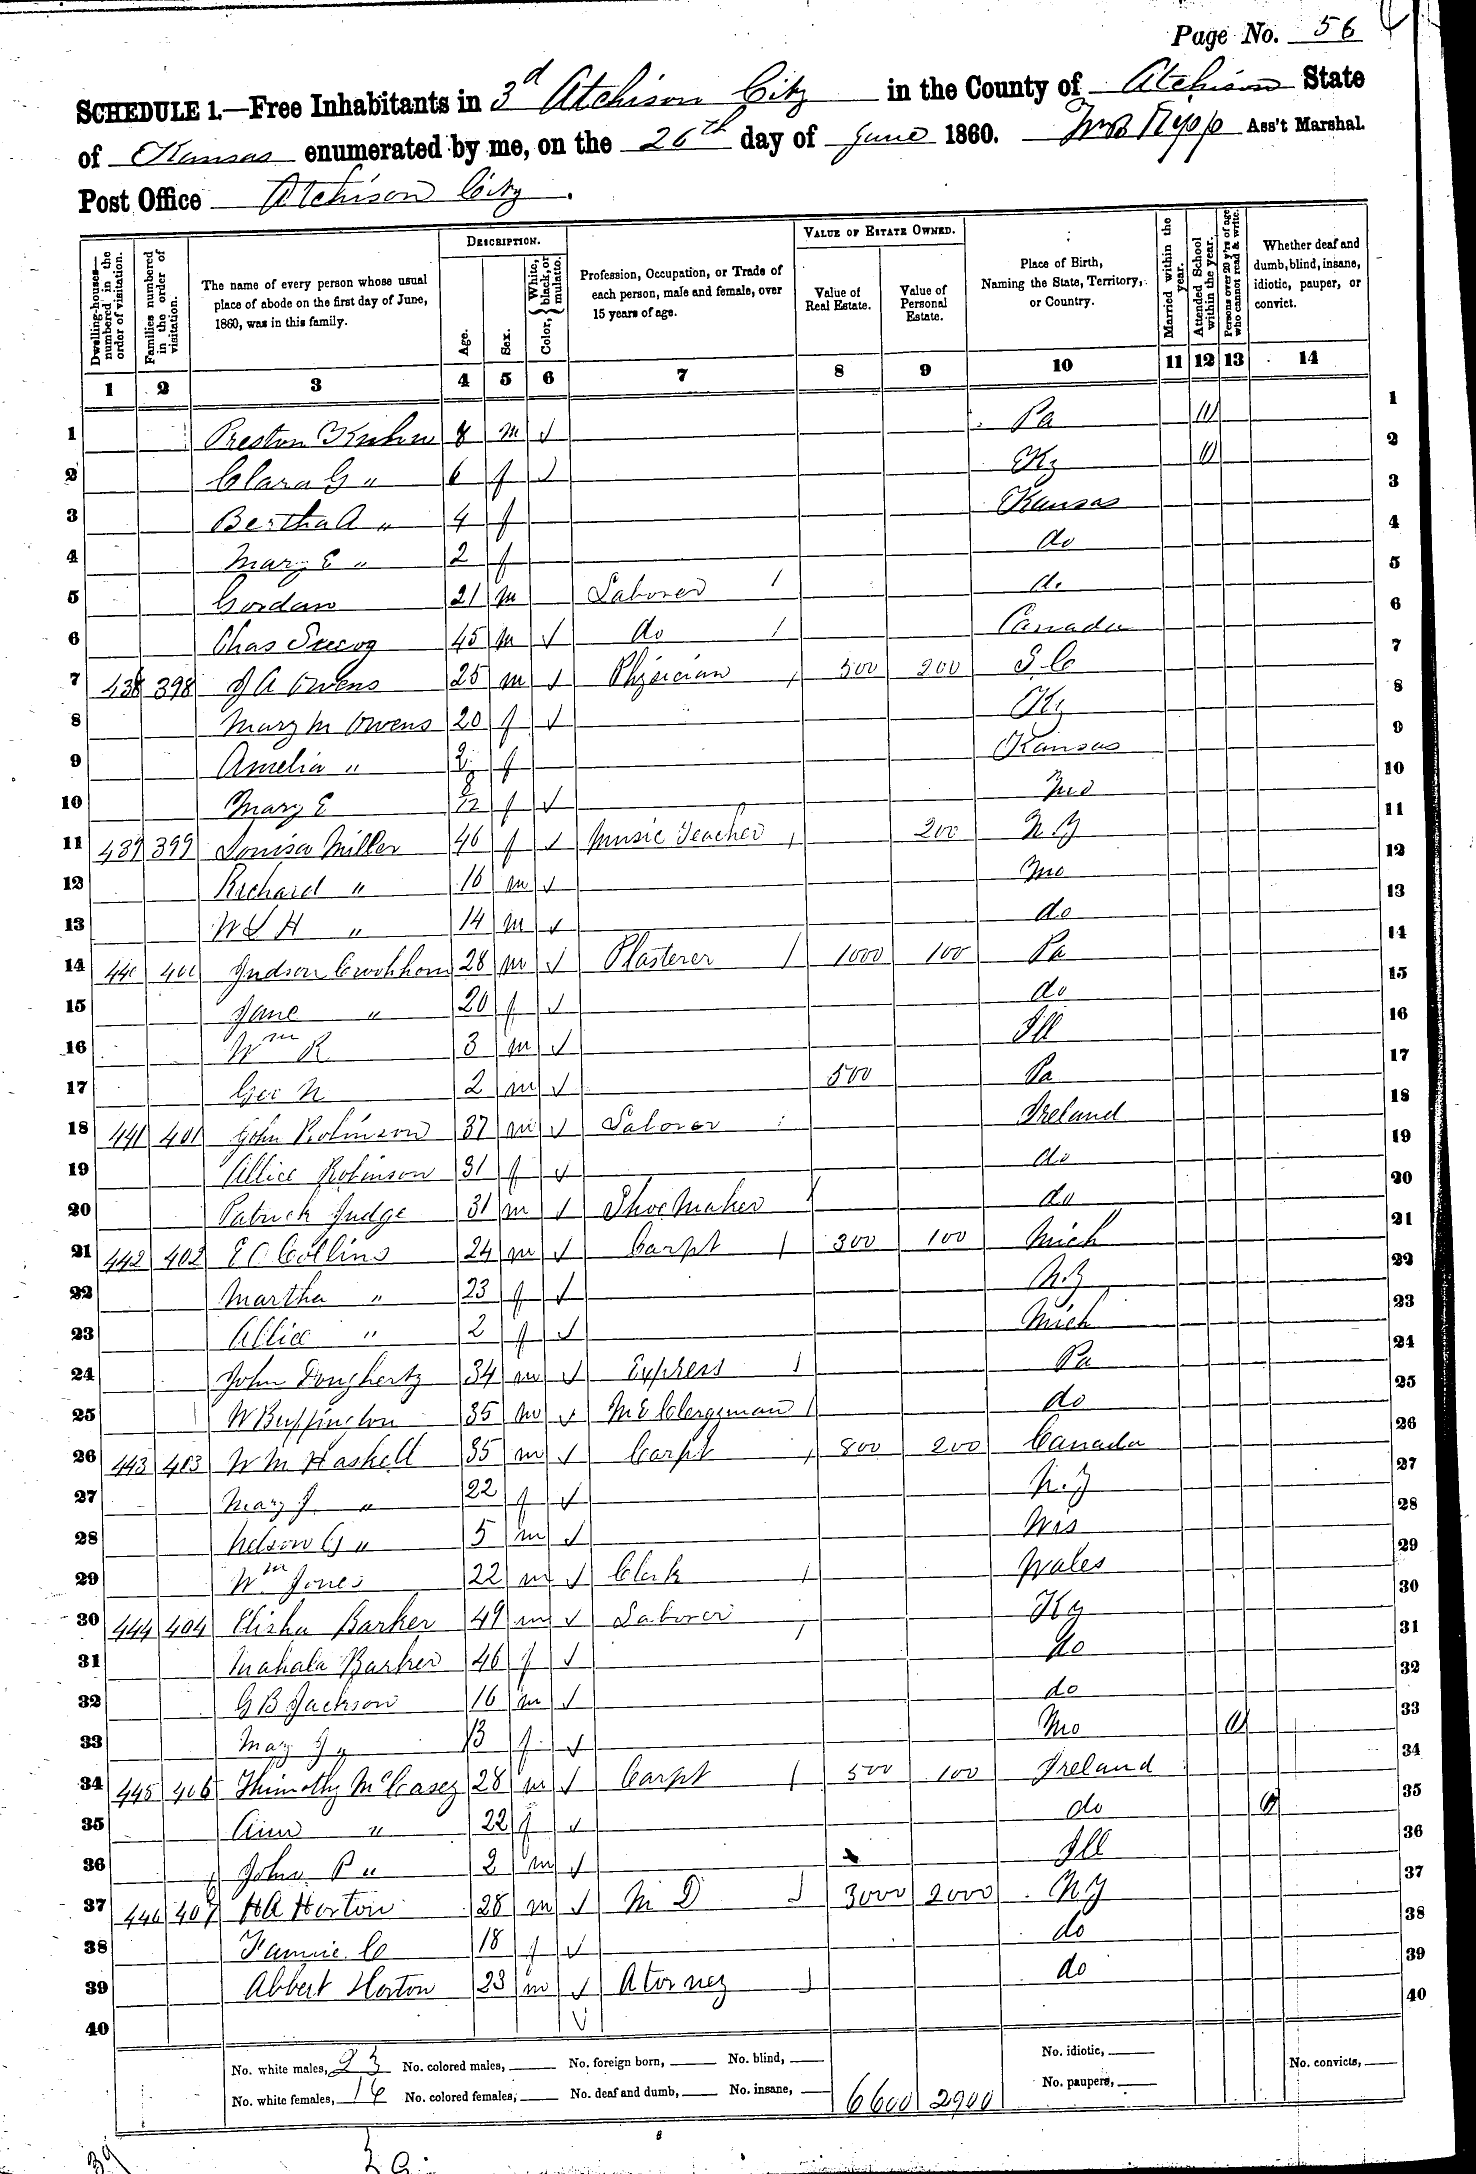 Page No. 56
SCHEDULE 1.—Free Inhabitants in 3d Atchison City in the County of Atchison State
of Kansas enumerated by me, on the 26th day of June 1860. Ass't Marshal.
Post Office Atchison City.
Dwelling-houses—numbered in the order of visitation. Families numbered in the order of visitation. The name of every person whose usual place of abode on the first day of June, 1860, was in this family. DESCRIPTION. Age. Sex. Color, White, black, or mulatto. Profession, Occupation, or Trade of each person, male and female, over 15 years of age. VALUE OF ESTATE OWNED. Value of Real Estate. Value of Personal Estate. Place of Birth, Naming the State, Territory, or Country. Married within the year. Attended School within the year. Persons over 20 y'rs of age who cannot read & write. Whether deaf and dumb, blind, insane, idiotic, pauper, or convict.
1 2 3 4 5 6 7 8 9 10 11 12 13 14
1 Preston 8 m ✓ Pa 1 1
2 Clara G " 6 f ✓ Ky 1 2
3 Bertha A " 4 f Kansas 3
4 Mary E " 2 f do 4
5 Gordan 21 m Laborer / do 5
6 Chas 45 m ✓ do / Canada 6
7 438 398 J A Owens 25 m ✓ Physician / 500 200 S.C 7
8 Mary M Owens 20 f ✓ Ky 8
9 Amelia " 2 f Kansas 9
10 Mary E 8/12 f ✓ Mo 10
11 439 399 Louisa Miller 46 f ✓ Music Teacher / 200 N.Y 11
12 Richard " 16 m ✓ Mo 12
13 W S H " 14 m ✓ do 13
14 440 400 Judson Crookhom 28 m ✓ Plasterer / 1000 100 Pa 14
15 Jane " 20 f ✓ do 15
16 Wm R 3 m ✓ Ill 16
17 Geo N 2 m ✓ 500 Pa 17
18 441 401 John Robinson 37 m ✓ Laborer Ireland 18
19 Allice Robinson 31 f ✓ do 19
20 Patrick Judge 31 m ✓ Shoe Maker / do 20
21 442 402 E C Collins 24 m ✓ Carpt / 300 100 Mich 21
22 Martha " 23 f ✓ N.Y 22
23 Allice " 2 f ✓ Mich 23
24 John Dougherty 34 m ✓ Express / Pa 24
25 W Buffington 35 m ✓ M E Clergyman / do 25
26 443 403 W M Haskell 35 m ✓ Carpt / 800 200 Canada 26
27 Mary J " 22 f ✓ N.Y 27
28 Nelson G " 5 m ✓ Wis 28
29 Wm Jones 22 m ✓ Clerk / Wales 29
30 444 404 Elisha Barker 49 m ✓ Laborer / Ky 30
31 Mahala Barker 46 f ✓ do 31
32 G B Jackson 16 m ✓ do 32
33 May J " 13 f ✓ Mo 1 33
34 445 405 Thimothy McCasey 28 m ✓ Carpt / 500 100 Ireland 34
35 Ann " 22 f ✓ do 1 35
36 John P " 2 m ✓ Ill 36
37 446 406 H A Horton 28 m ✓ M D / 3000 2000 N Y 37
38 Fannie C 18 f ✓ do 38
39 Abbert Horton 23 m ✓ Atorney / do 39
40 ✓ 40
No. white males, 23 No. colored males, No. foreign born, No. blind, No. idiotic, No. convicts,
No. white females, 16 No. colored females, No. deaf and dumb, No. insane, 6600 2900 No. paupers,
39